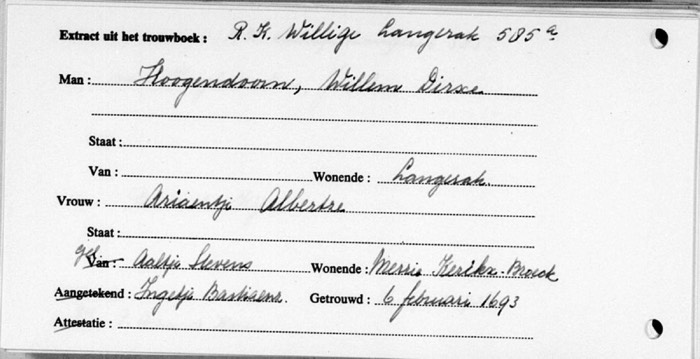 Extract uit het trouwboek: R.K. Willige Langerak 585a
Man: Hoogendoorn, Willem Dirxe
Staat:
Van: Wonende: Langerak.
Vrouw: Ariaentje Albertse
Staat:
get. Van: Aaltje Stevens Wonende: Merris Kerikx-Broeck
Aangetekend: Ingetje Bastiaens. Getrouwd: 6 februari 1693
Attestatie: